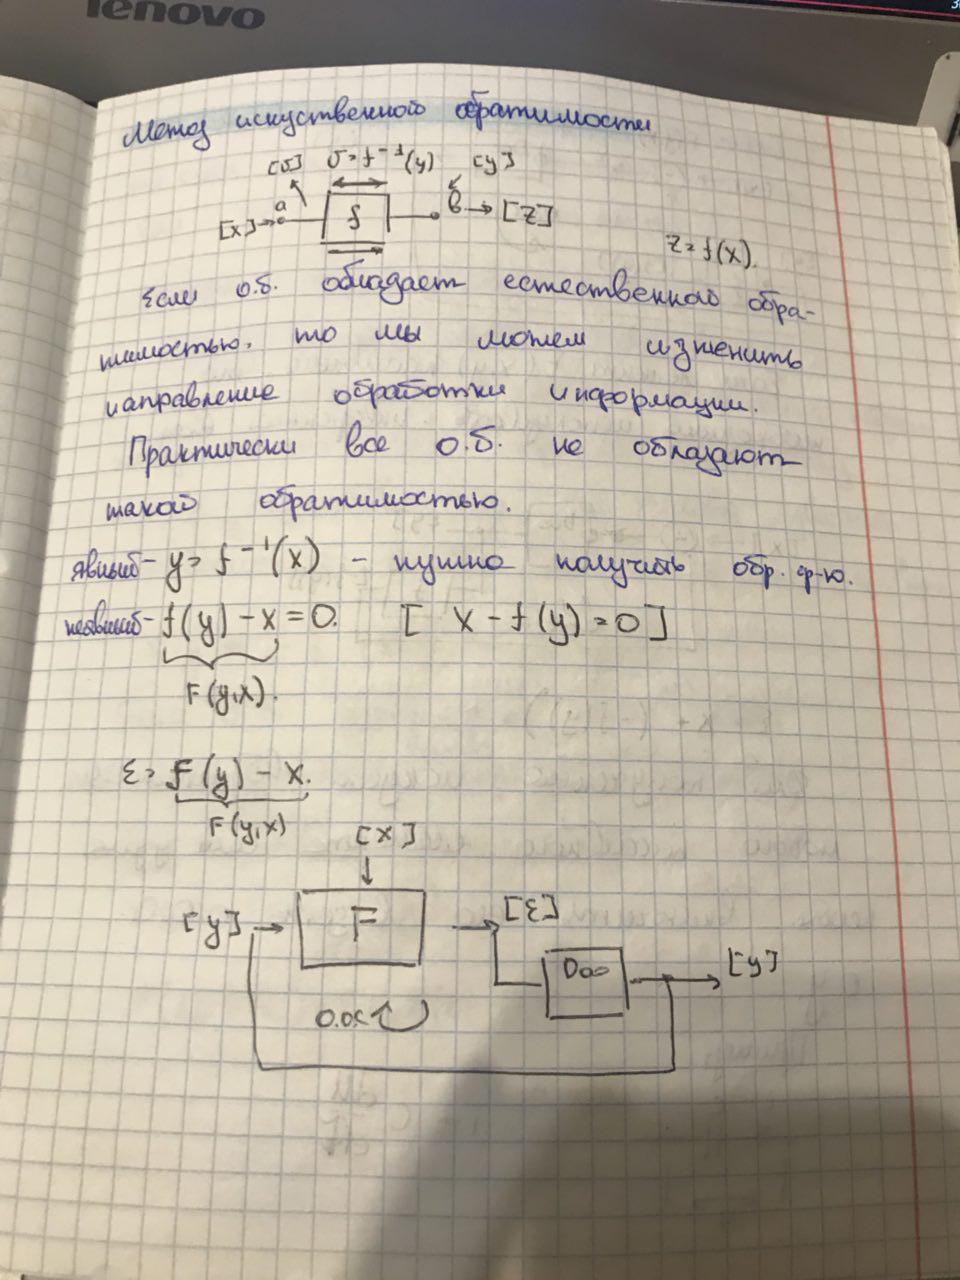 lenovo
Метод искуственного обратимости
[υ] υ=f⁻¹(y) [y]
[x]→ a f в → [z]
z=f(x).
Если о.б. обладает естественной обра-
тимостью, то мы можем изменить
направление обработки информации.
Практически все о.б. не обладают
такой обратимостью.
явный- y=f⁻¹(x) - нужно получить обр. ф-ю.
неявный- f(y)-x=0. [x-f(y)=0]
F(y,x).
ε= f(y)-x.
F(y,x)
[x]
[y] → F → [ε]
D∞ → [y]
о.ос